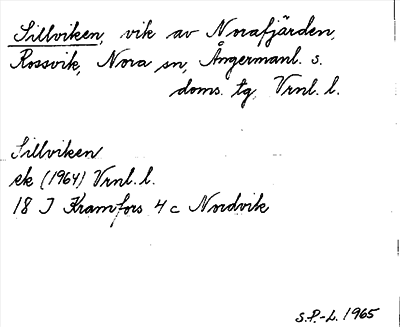 Sillviken, vik av Norafjärden,
Rossvik, Nora sn, Ångermanl. s.
doms. tg, Vrnl. l.
Sillviken
ek (1964) Vrnl. l.
18 J Kramfors 4 c Nordvik
S.P.-L. 1965